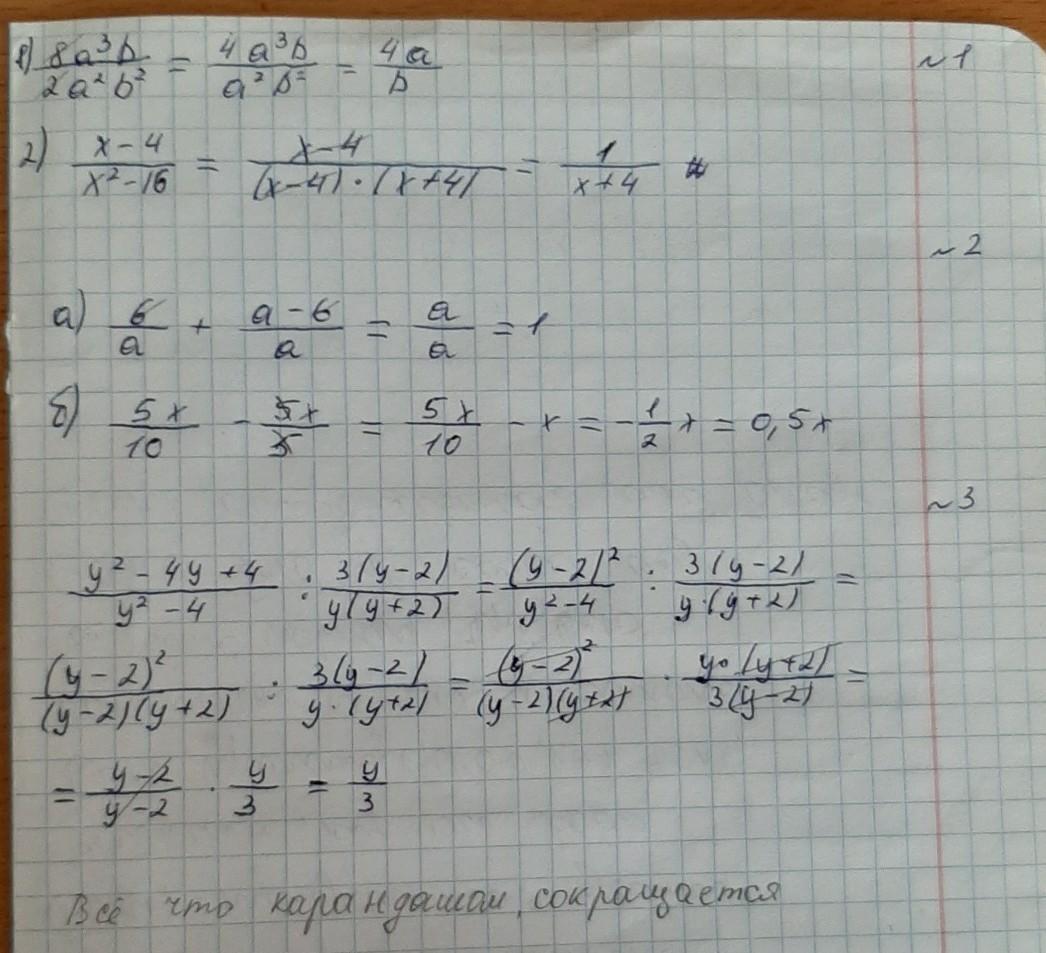 ~1
1) 8a³b/2a²b² = 4a³b/a²b² = 4a/b
2) x-4/x²-16 = x-4/(x-4)·(x+4) = 1/x+4
~2
а) 6/a + a-6/a = a/a = 1
б) 5x/10 - 5x/5 = 5x/10 - x = -1/2 x = 0,5x
~3
y²-4y+4/y²-4 : 3(y-2)/y(y+2) = (y-2)²/y²-4 : 3(y-2)/y·(y+2) =
(y-2)²/(y-2)(y+2) : 3(y-2)/y·(y+2) = (y-2)²/(y-2)(y+2) · y·(y+2)/3(y-2) =
= y-2/y-2 · y/3 = y/3
Всё что карандашом, сокращается